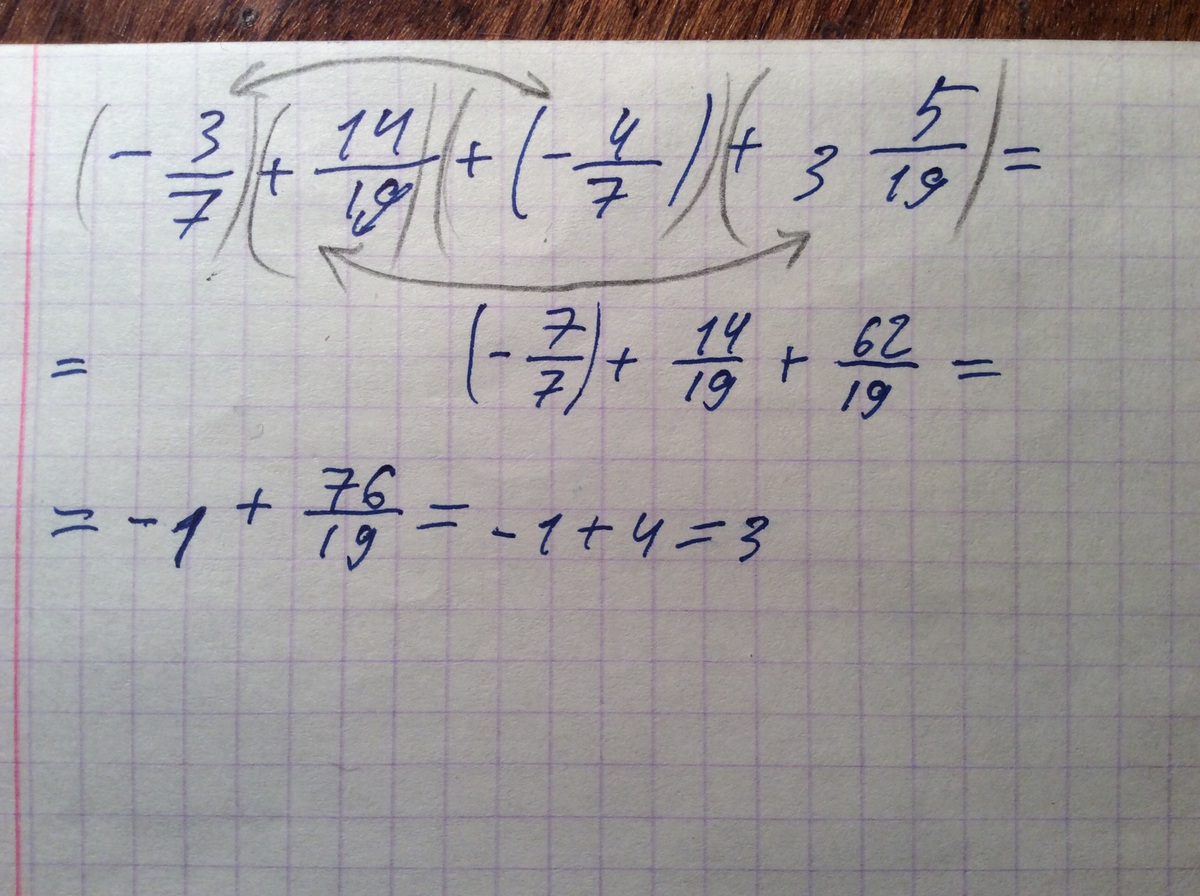 (- 3/7) (+ 14/19) (+ (- 4/7)) (+ 3 5/19) =
= (- 7/7) + 14/19 + 62/19 =
= - 1 + 76/19 = - 1 + 4 = 3